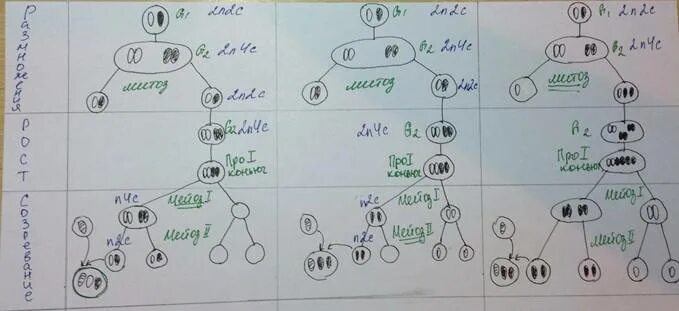 Размножения
Рост
Созревание
G₁ 2n2c
G₂ 2n4c
митоз
2n2c
G₂ 2n4c
Про I
конъюг
n4c
Мейоз I
n2c
Мейоз II
G₁ 2n2c
G₂ 2n4c
митоз
2n2c
2n4c G₂
Про I
конъюг
n2c
Мейоз I
n2c
Мейоз II
2n2c
2n4c
митоз
Про I
конъюг
Мейоз I
Мейоз II